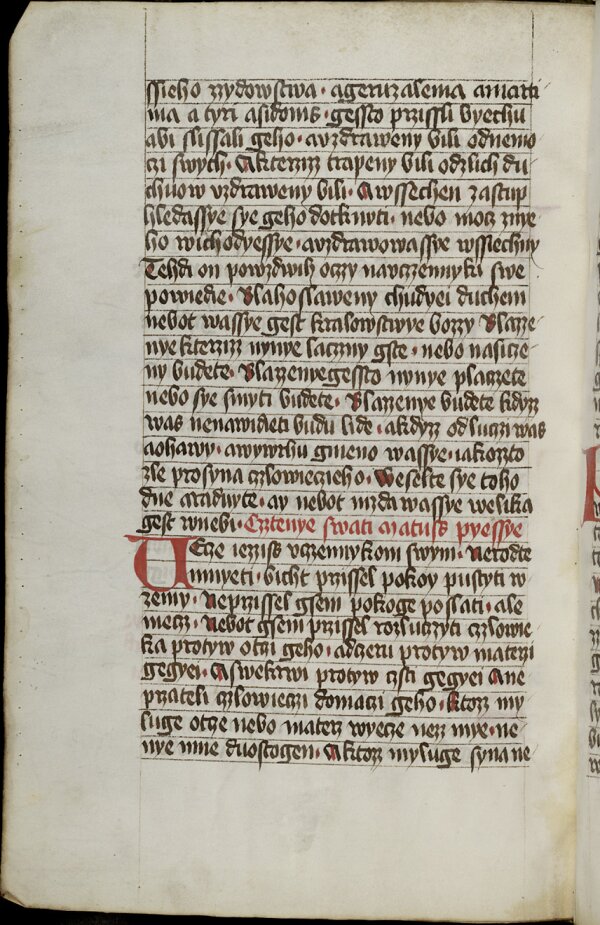 ssieho zzydowstwa · ageruzalema amarti
ma a tyri asidonis · gessto przissli byechu
abi slissali geho · auzdraweny bili odnemo
czi swych · Akterziz trapeny bili odzlich du
chuow vzdraweny bili · Awssechen zastup
hledassye sye geho dotknyti · nebo mocz znye
ho wichodyessye · auzdrawowassye wssiechny
Tehdi on powzdwih oczzy nauczennyki swe
powiedie · Blahoslaweny chudyei duchem
nebot wassye gest kralowstwye bozzy Blazze
nye kterziz nynye laczny gste · nebo nasicze
ny budete · Blazzenye gessto nynye placzete
nebo sye smyti budete · Blazzenye budete kdyzz
was nenawidieti budu lide · akdyzz odluczi was
aohawy · awywrhu gmeno wassye · iakozzto
zle prosyna czlowieczieho · Weselte sye toho
dne araduyte · ay nebot mzda wassye welika
gest wnebi · Cztenye swati Matuss pyessye
Vecze ieziss vczennykom swym · Nerodte
mnyeti · bicht przissel pokoy pustyti w
zemy · Neprzissel gsem pokoge poslati · ale
mecz · Nebot gsem przissel rozluczyti czlowie
ka protyw otczi geho · adczeru protyw materzi
gegyei · Aswekrwi protyw czsti gegyei Ane
przateli czlowieczi domaczi geho · Ktozz my
luge otcze nebo materz wyecze nezz mye · ne
nye mne duostogen · Aktozz myluge syna ne